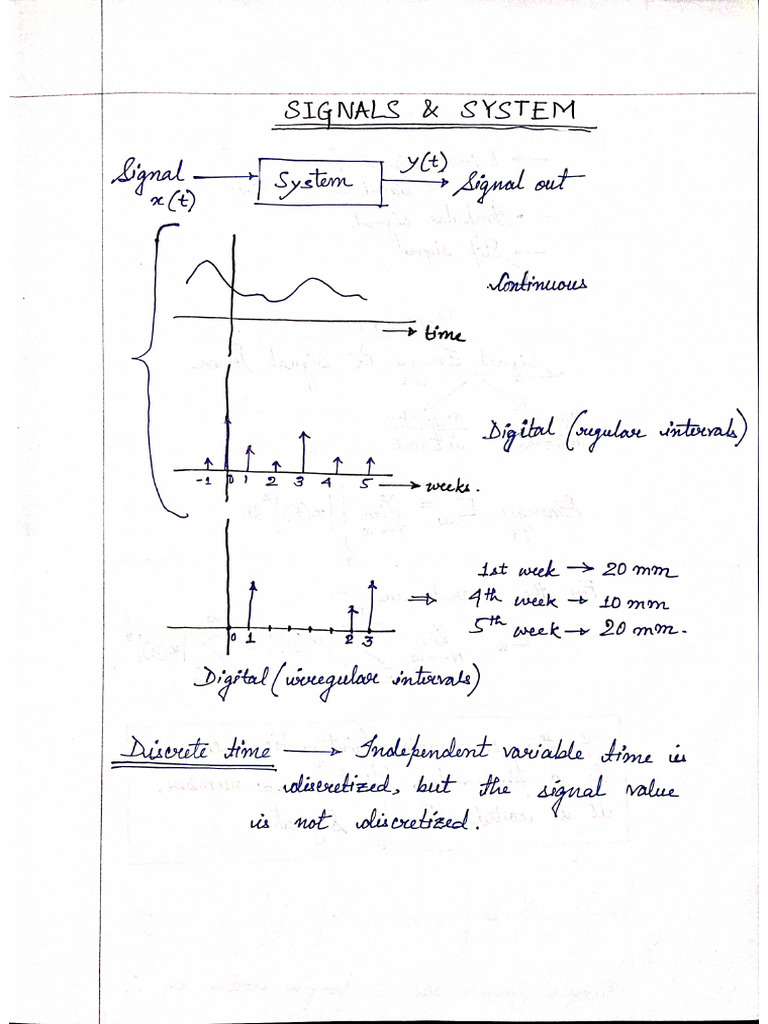 SIGNALS & SYSTEM
Signal
x(t)
System
y(t)
Signal out
Continuous
time
Digital (regular intervals)
-1 0 1 2 3 4 5
weeks.
1st week → 20 mm
⇒ 4th week → 10 mm
5th week → 20 mm.
0 1 2 3
Digital (irregular intervals)
Discrete time → Independent variable time is
discretized, but the signal value
is not discretized.